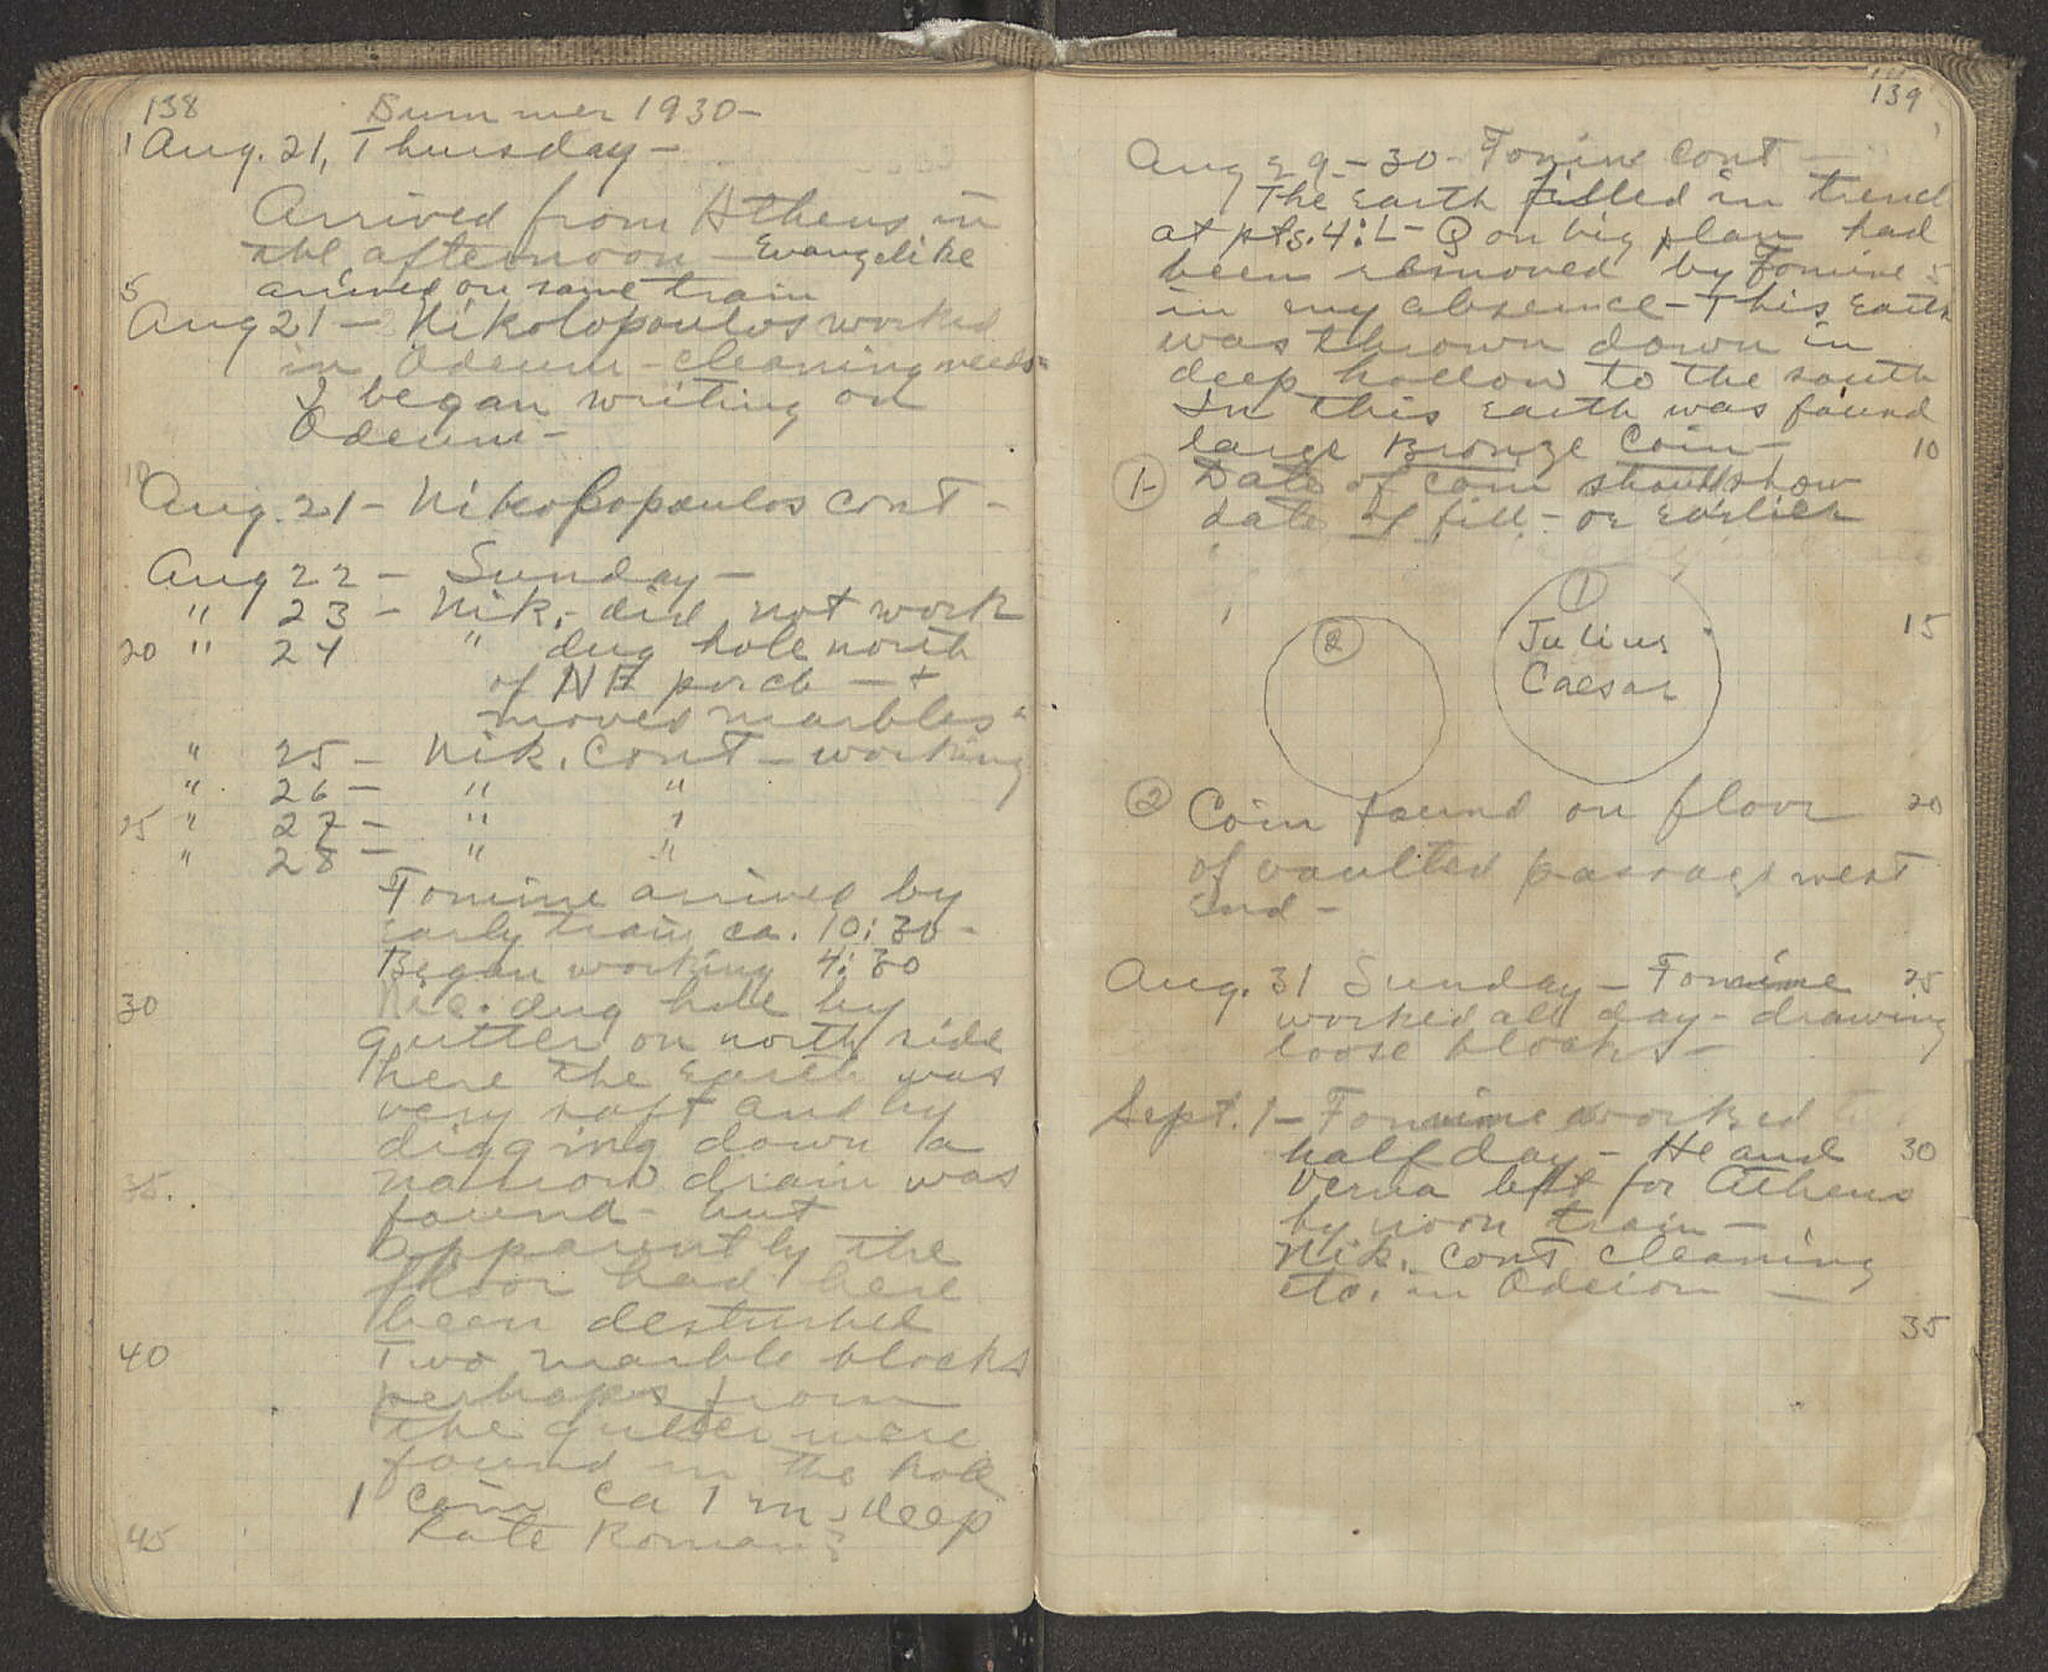 138 Summer 1930-
1 Aug. 21, Thursday -
Arrived from Athens in
the afternoon - Evangelike
5 arrived on same train
Aug 21 - Nikolopoulos worked
in Odeum - cleaning weeds -
I began writing on
Odeum -
10 Aug. 21 - Nikolopoulos cont -
Aug 22 - Sunday -
" 23 - Nik. did not work
20 " 24 " dug hole north
of NE porch - +
moved marbles "
" 25 - Nik. Cont - working
" 26 - " "
25 " 27 - " "
" 28 - " "
Fomine arrived by
early train ca. 10:30 -
Began working 4:30
30 Nic. dug hole by
gutter on north side
here the earth was
very soft and by
digging down a
35. narrow drain was
found - but
apparently the
floor had here
been desturbed
40 Two marble blocks
perhaps from
the gutter were
found in the hole
1 coin ca 1 m. deep
45 Late Roman?
139
Aug 29 - 30 - Fomine cont -
The earth filled in trench
at pts. 4:L-Q on big plan had
been removed by Fomine 5
in my absence - This earth
was thrown down in
deep hollow to the south
In this earth was found
large Bronze Coin - 10
1- Date of coin should show
date of fill - or earlier
1
2 Julius 15
Caesar
2 Coin found on floor 20
of vaulted passage west
end -
Aug. 31 Sunday - Fomine 25
worked all day - drawing
loose blocks -
Sept. 1 - Fomine worked
half day - He and 30
Verna left for Athens
by noon train -
Nik. cont cleaning
etc. in Odeion -
35